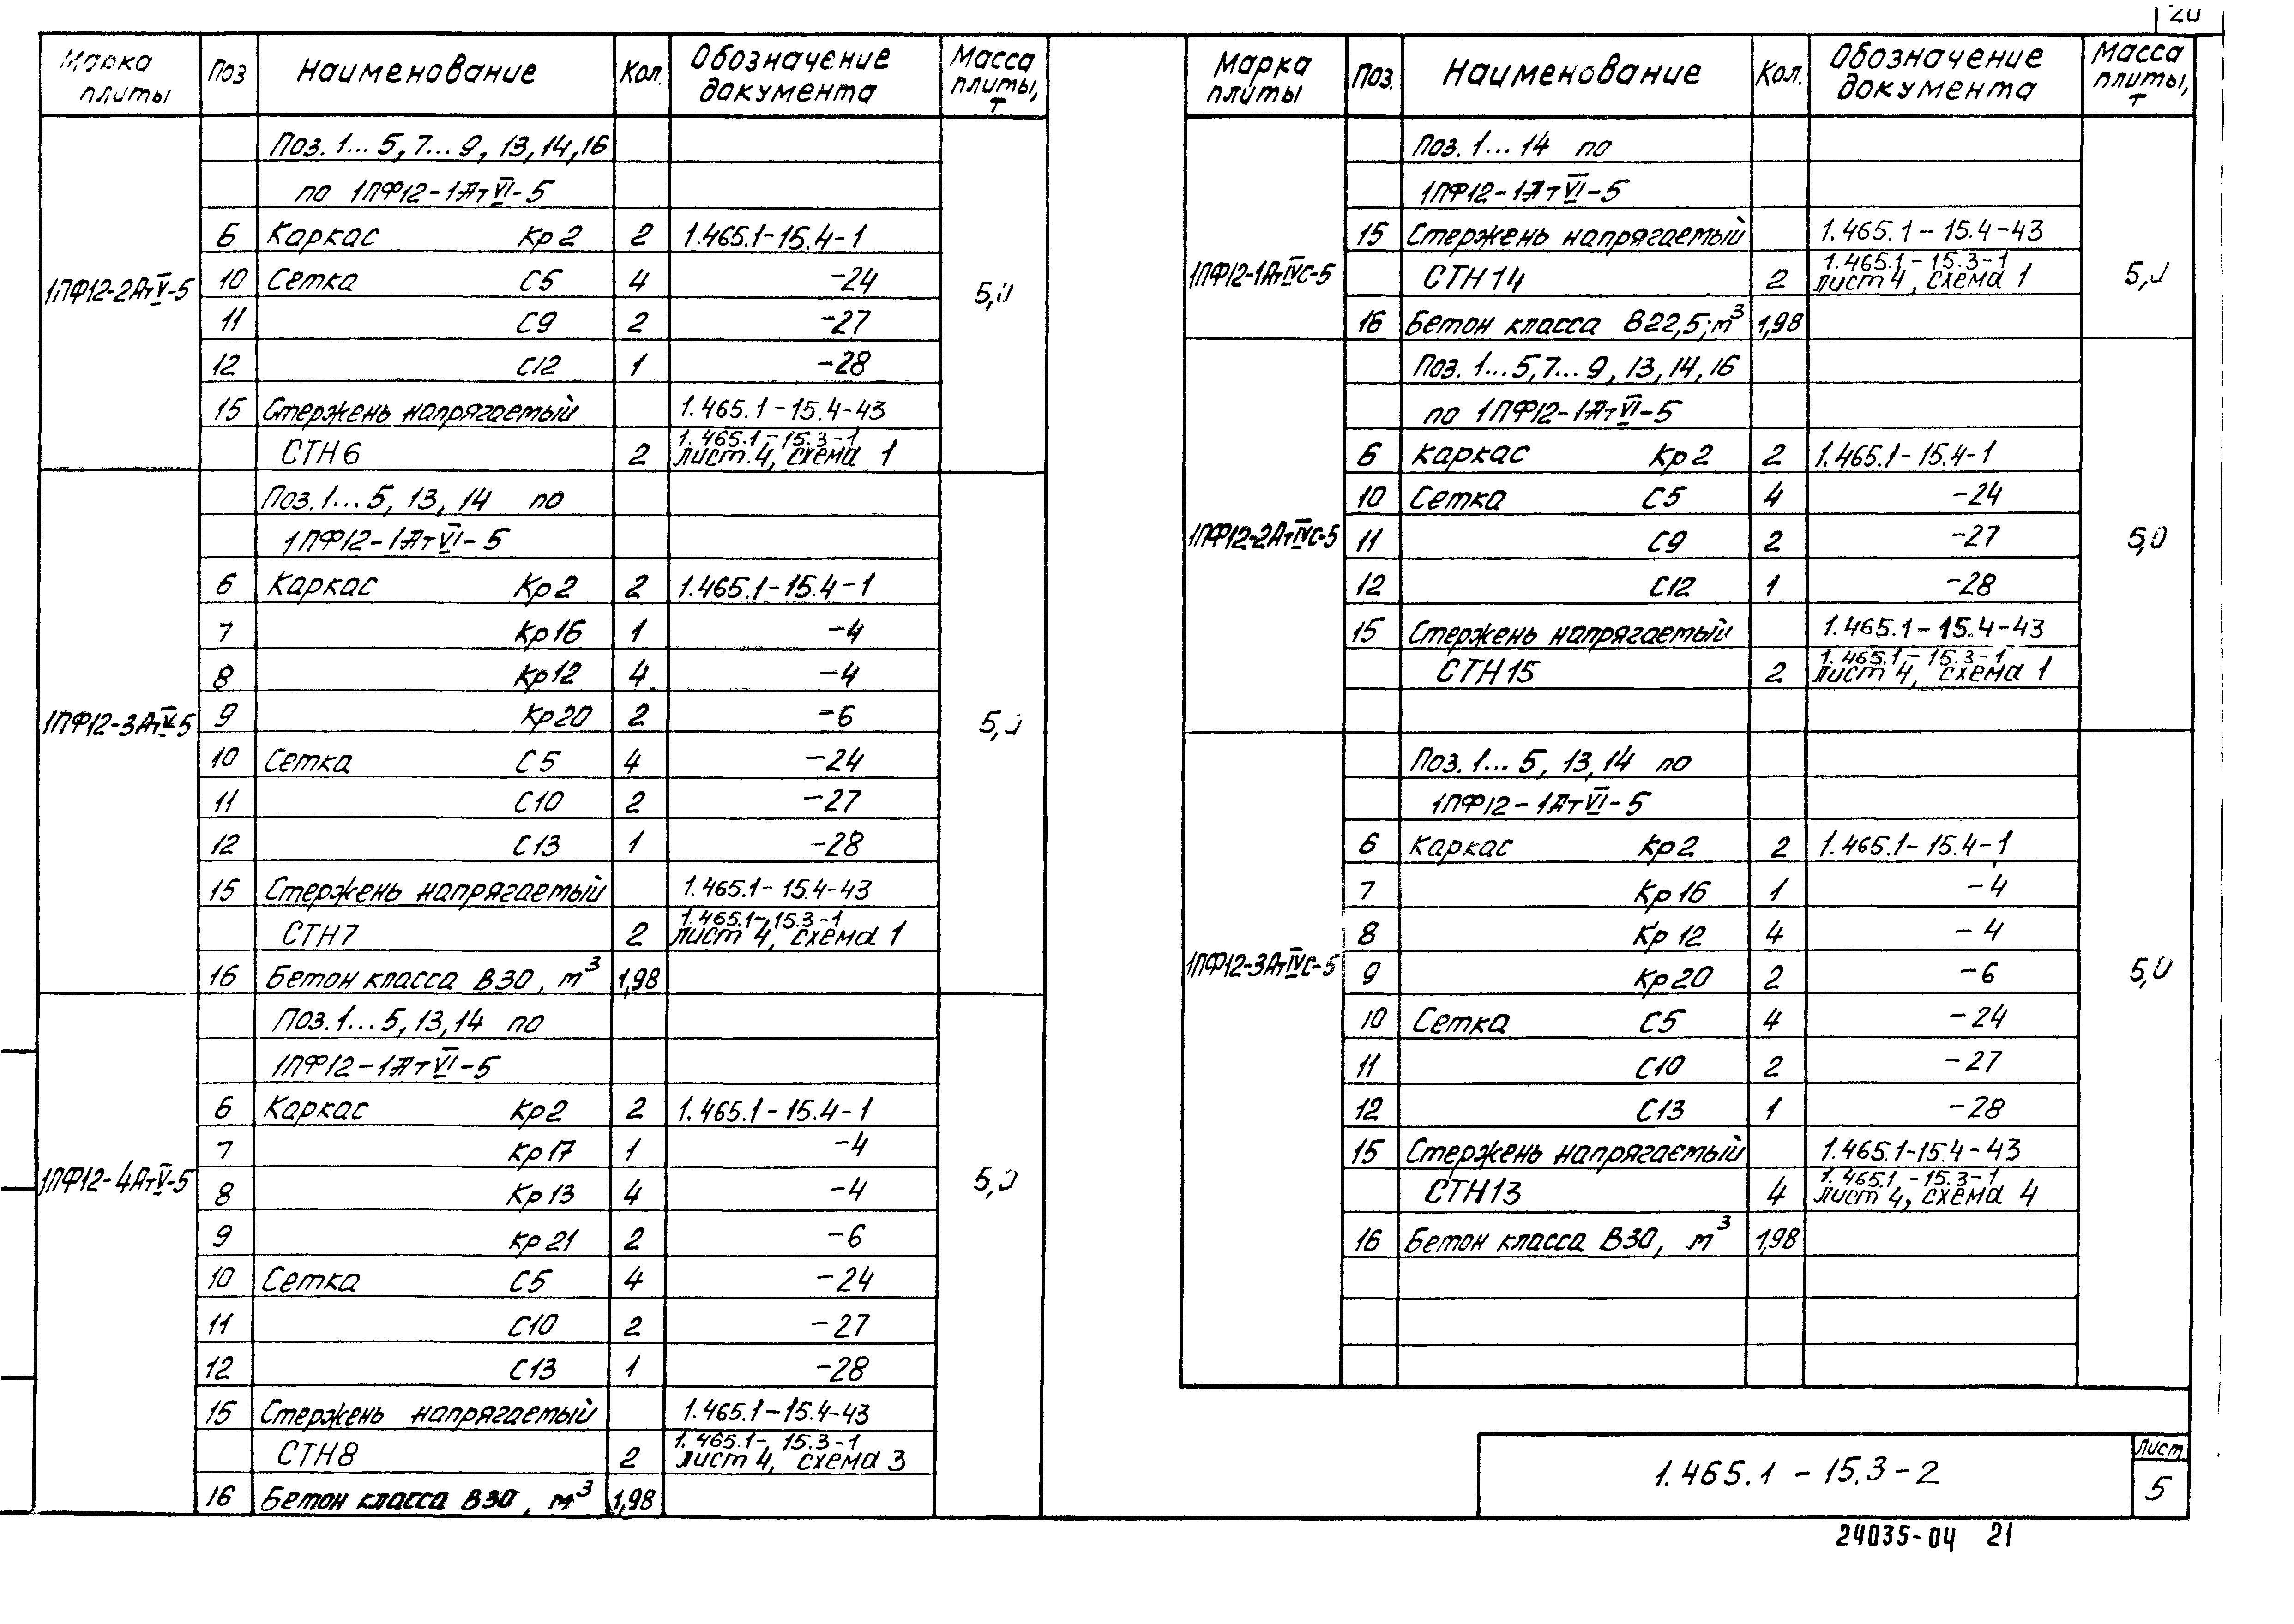 20
Марка плиты Поз Наименование Кол. Обозначение документа Масса плиты, т
Поз. 1... 5, 7... 9, 13, 14, 16
по 1ПФ12-1АтVI-5
1ПФ12-2АтV-5 5,0
6 Каркас Кр2 2 1.465.1-15.4-1
10 Сетка С5 4 -24
11 С9 2 -27
12 С12 1 -28
15 Стержень напрягаемый 1.465.1-15.4-43
СТН6 2 1.465.1-15.3-1 лист 4, схема 1
Поз. 1... 5, 13, 14 по
1ПФ12-1АтVI-5
1ПФ12-3АтV-5 5,0
6 Каркас Кр2 2 1.465.1-15.4-1
7 Кр16 1 -4
8 Кр12 4 -4
9 Кр20 2 -6
10 Сетка С5 4 -24
11 С10 2 -27
12 С13 1 -28
15 Стержень напрягаемый 1.465.1-15.4-43
СТН7 2 1.465.1-15.3-1 лист 4, схема 1
16 Бетон класса В30, м³ 1,98
Поз. 1... 5, 13, 14 по
1ПФ12-1АтVI-5
1ПФ12-4АтV-5 5,0
6 Каркас Кр2 2 1.465.1-15.4-1
7 Кр17 1 -4
8 Кр13 4 -4
9 Кр21 2 -6
10 Сетка С5 4 -24
11 С10 2 -27
12 С13 1 -28
15 Стержень напрягаемый 1.465.1-15.4-43
СТН8 2 1.465.1-15.3-1 лист 4, схема 3
16 Бетон класса В30, м³ 1,98
Марка плиты Поз. Наименование Кол. Обозначение документа Масса плиты, т
Поз. 1... 14 по
1ПФ12-1АтVI-5
1ПФ12-1АтIVС-5 5,0
15 Стержень напрягаемый 1.465.1-15.4-43
СТН14 2 1.465.1-15.3-1 лист 4, схема 1
16 Бетон класса В22,5; м³ 1,98
Поз. 1... 5, 7... 9, 13, 14, 16
по 1ПФ12-1АтVI-5
1ПФ12-2АтIVС-5 5,0
6 Каркас Кр2 2 1.465.1-15.4-1
10 Сетка С5 4 -24
11 С9 2 -27
12 С12 1 -28
15 Стержень напрягаемый 1.465.1-15.4-43
СТН15 2 1.465.1-15.3-1 лист 4, схема 1
Поз. 1... 5, 13, 14 по
1ПФ12-1АтVI-5
1ПФ12-3АтIVС-5 5,0
6 Каркас Кр2 2 1.465.1-15.4-1
7 Кр16 1 -4
8 Кр12 4 -4
9 Кр20 2 -6
10 Сетка С5 4 -24
11 С10 2 -27
12 С13 1 -28
15 Стержень напрягаемый 1.465.1-15.4-43
СТН13 4 1.465.1-15.3-1 лист 4, схема 4
16 Бетон класса В30, м³ 1,98
1.465.1-15.3-2
Лист
5
24035-04 21